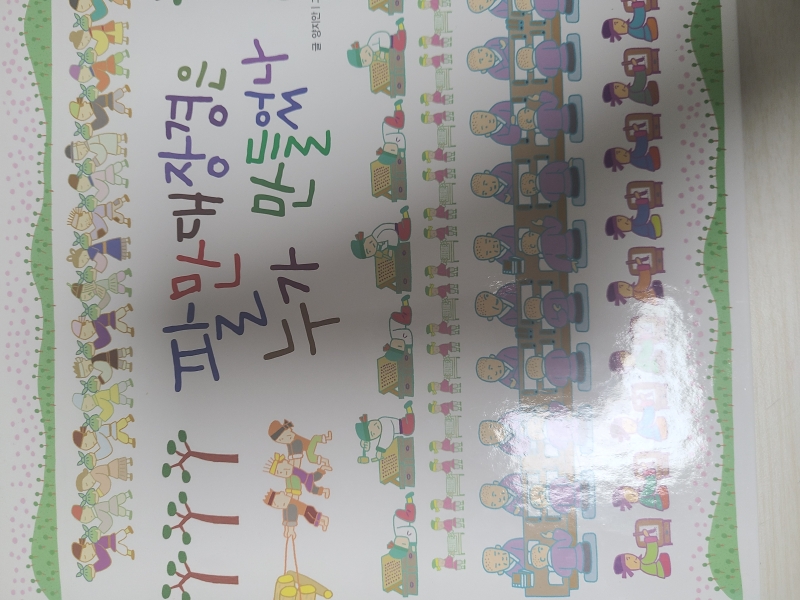 팔만대장경은
누가 만들었나
글 양지안 |